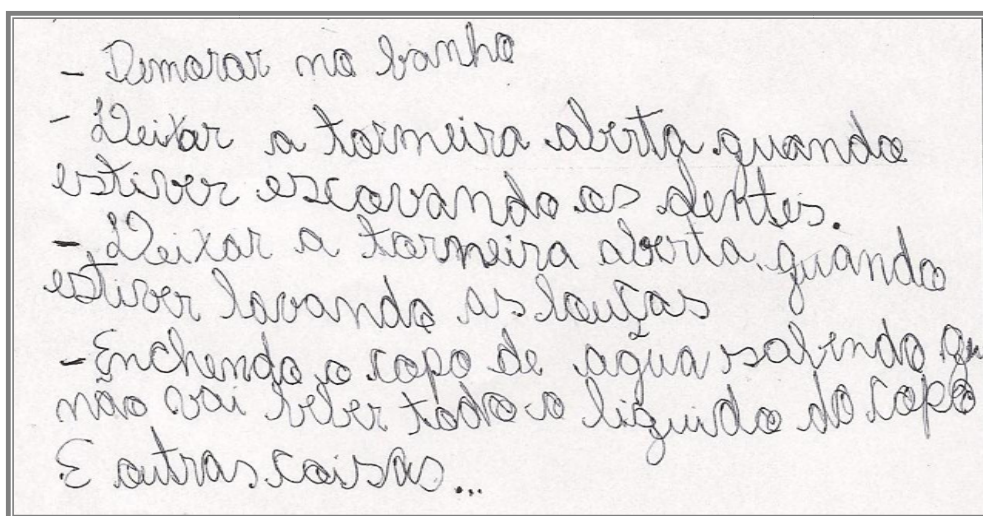 - Demorar no banho
- Deixar a torneira aberta quando
estiver escovando os dentes.
- Deixar a torneira aberta quando
estiver lavando as louças
- Enchendo o copo de agua sabendo qu
não vai beber todo o liquido do copo
E outras coisas...